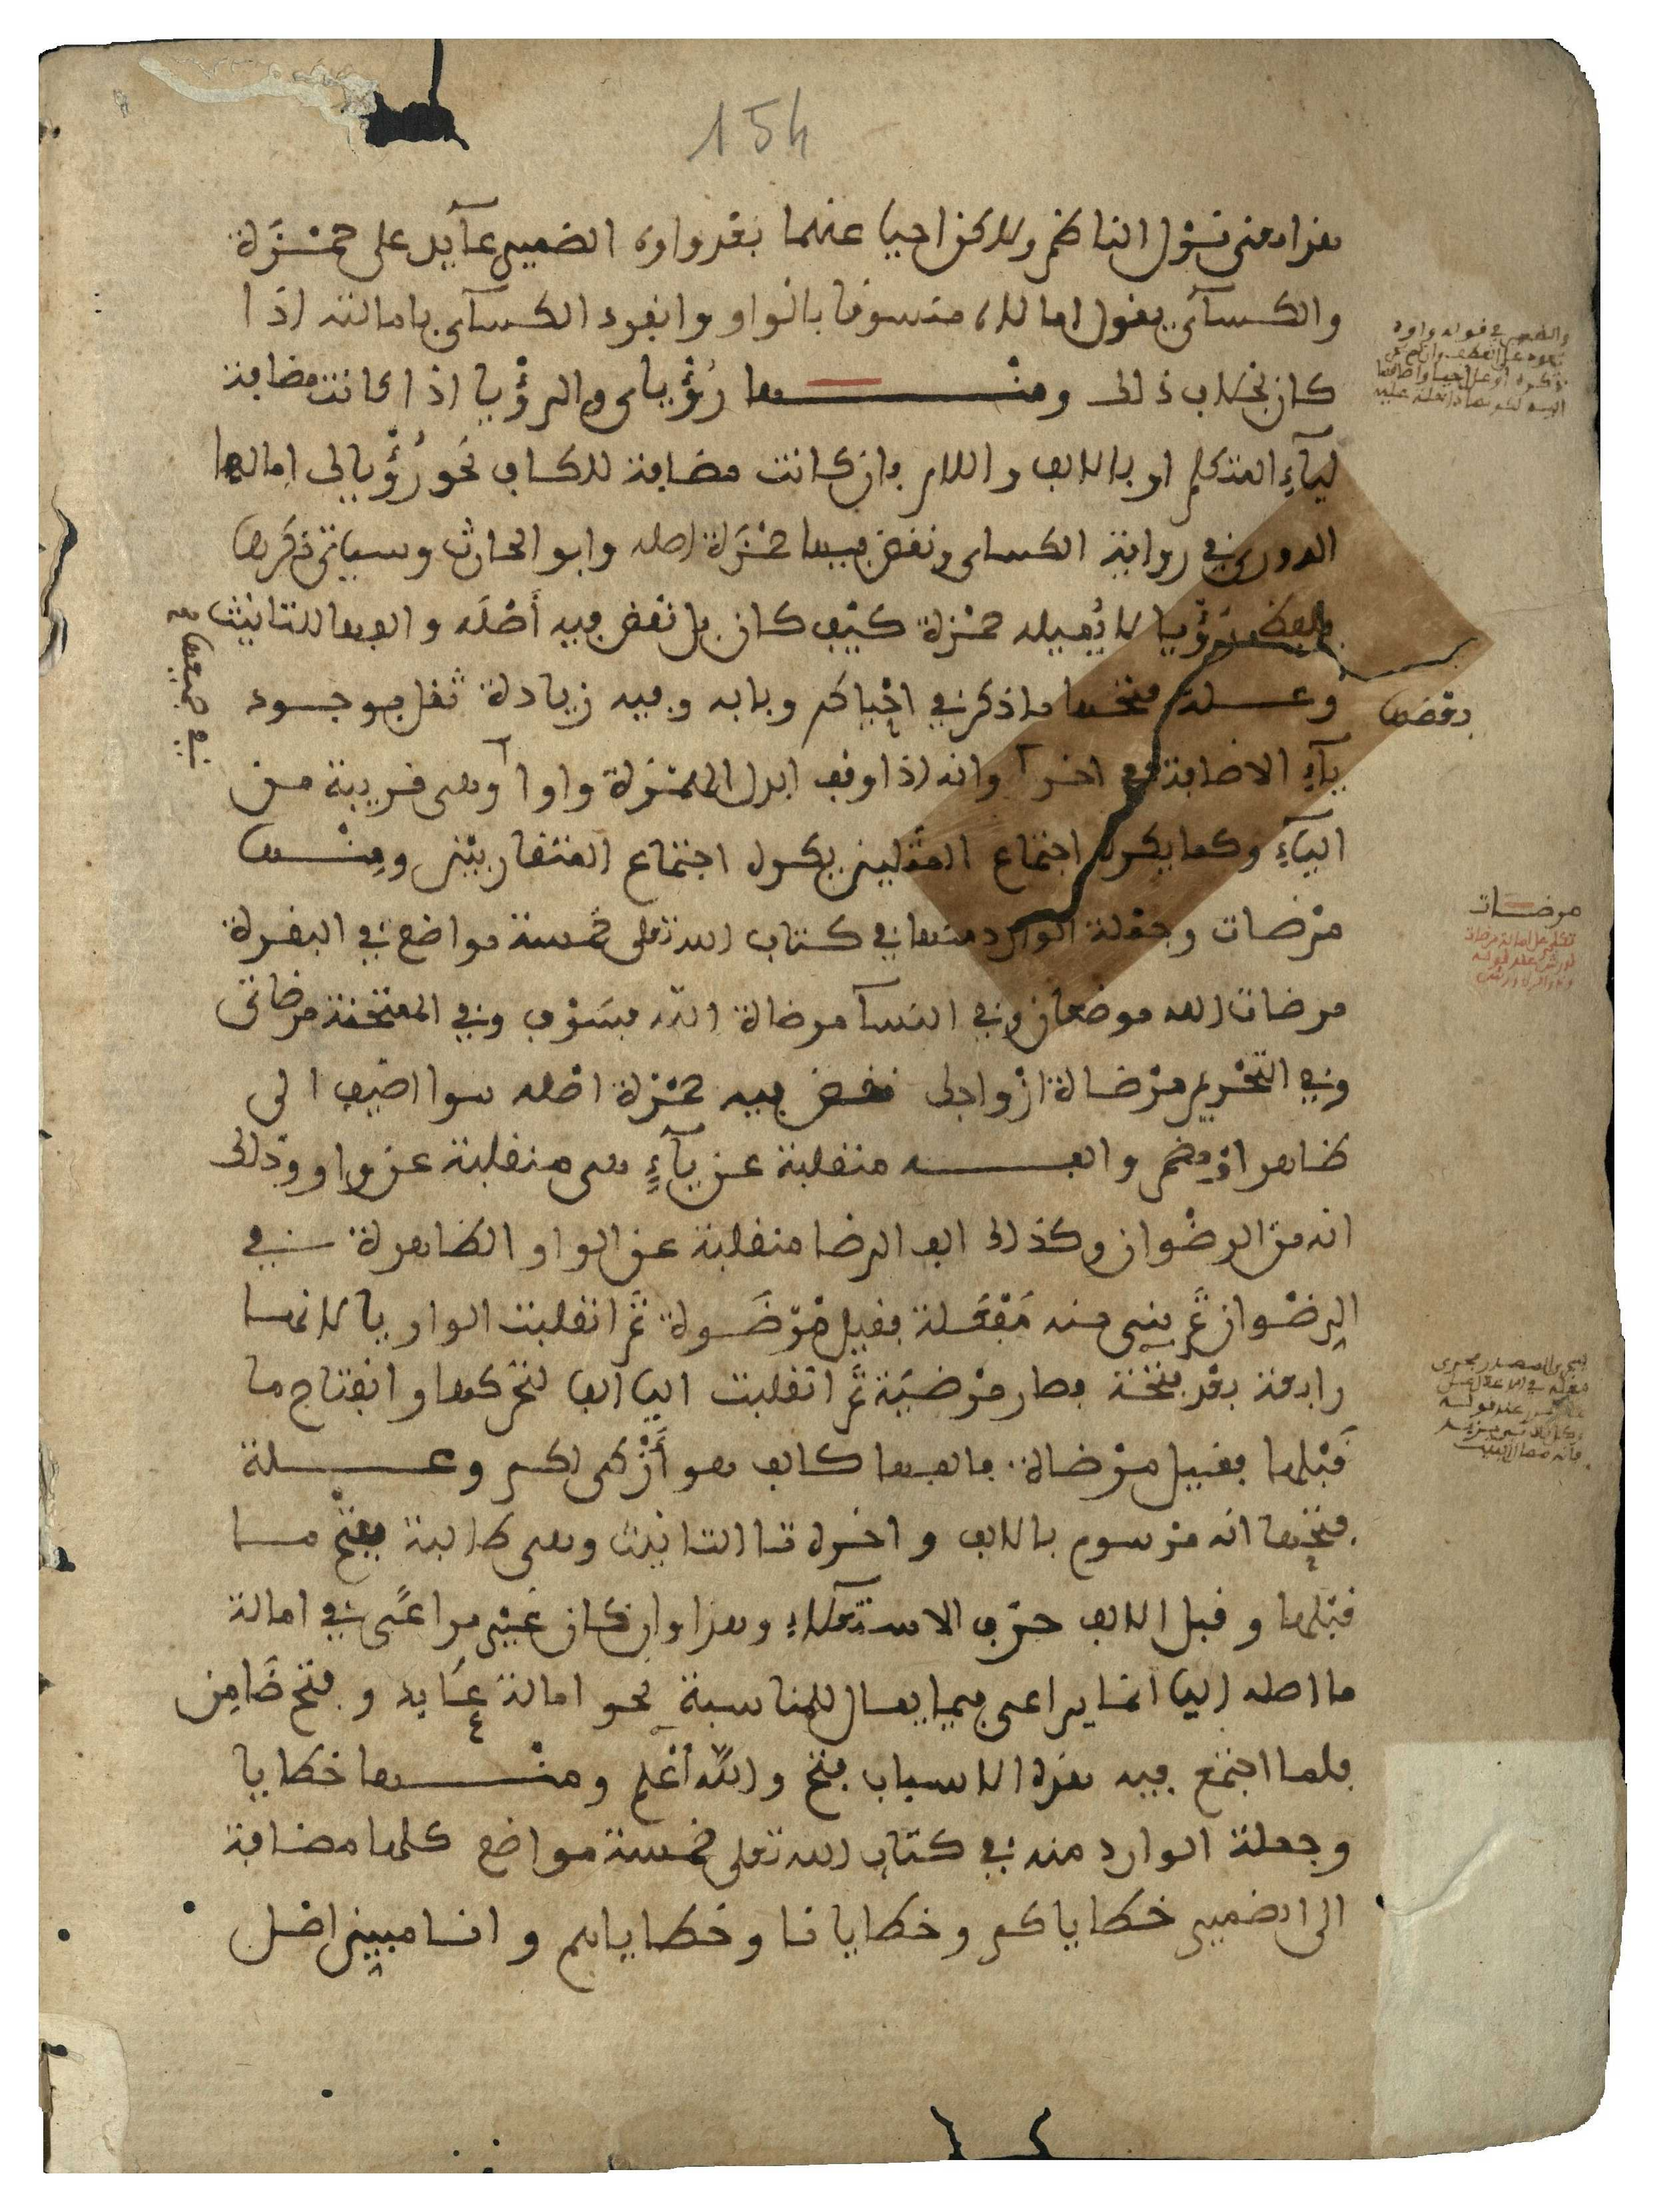 154
هذا معنى قول الناظم ولاكن احيا عنهما بعد واوه الضمير عآيد على حمزة
والكسآئي يقول امالاه منسوقا بالواو وانفرد الكسآي بامالته اذا
كان بخلاف ذلك ومنْها رُؤْياى والرؤْيا اذا كانت مضافة
ليآءِ المتكلم او بالالف واللام وان كانت مضافة للكاف نحو رُؤْياك امالها
الدوري في رواية الكساى ونقض فيها حمْزَة اصله وابو الحارث وسياتي ذكرها
رؤْيا لا يُميله حمْزة كيْف كان بل نقض فيه أَصْلَه والفها للتانيث
وعلة فتحها ما ذكر في احْياكم وبابه وفيه زيادة ثقل بوجود
يآءِ الاضافة في اخره وانه اذا وقف ابدل الهمْزة واوا وهى قريبة من
اليآءِ وكما يكره اجتماع المثْلين يكره اجتماع المتقاربيْن ومنْها
مرْضات وجملة الوارد منها في كتاب الله تعلى خمسة مواضع في البقرة
مرضات الله موضعان وفي النسآ مرضاة اللّه فسَوْف وفي الممتحنة مرضاتى
وفي التحْريم مرْضاة ازْواجك نقض فيه حمْزة اصْله سوا اضيف الى
ظاهر اوْ مضمر والفه منقلبة عن يآءٍ هى منقلبة عن واو وذلك
انه من الرضْوان وكذلك الف الرضا منقلبة عن الواو الظاهرة في
الرضْوان ثم بنى منه مَفْعَلة فقيل مرْضَوة ثم انقلبت الواو يا لانها
رابعة بعْد فتْحة فصار مرْضيَة ثم انقلبت اليا الفا لتحركها وانفتاح ما
قبْلها فقيل مرْضاة فالفها كالف هو أَزْكى لكم وعلة
فتْحها انه مرْسوم بالالف واخره تا التانيث وهى طالبة بفتْح ما
قبْلها وقبل الالف حرْف الاستعْلاء وهذا وان كان غيْر مراعًى في امالة
ما اصله اليا انما يراعى فيما يمال للمناسبة نحو امالة عَابد وفتح ضَامِن
فلما اجتمع فيه هذه الاسباب فتح واللّه أعْلم ومنْها خطايا
وجملة الوارد منه في كتاب الله تعلى خمسة مواضع كلها مضافة
الى الضمير خطاياكم وخطايانا وخطاياهم وانما مييز اصْل
والضمير في قوله واوه
مرضات
تكلم على امالة مرضات
لورش عند قوله